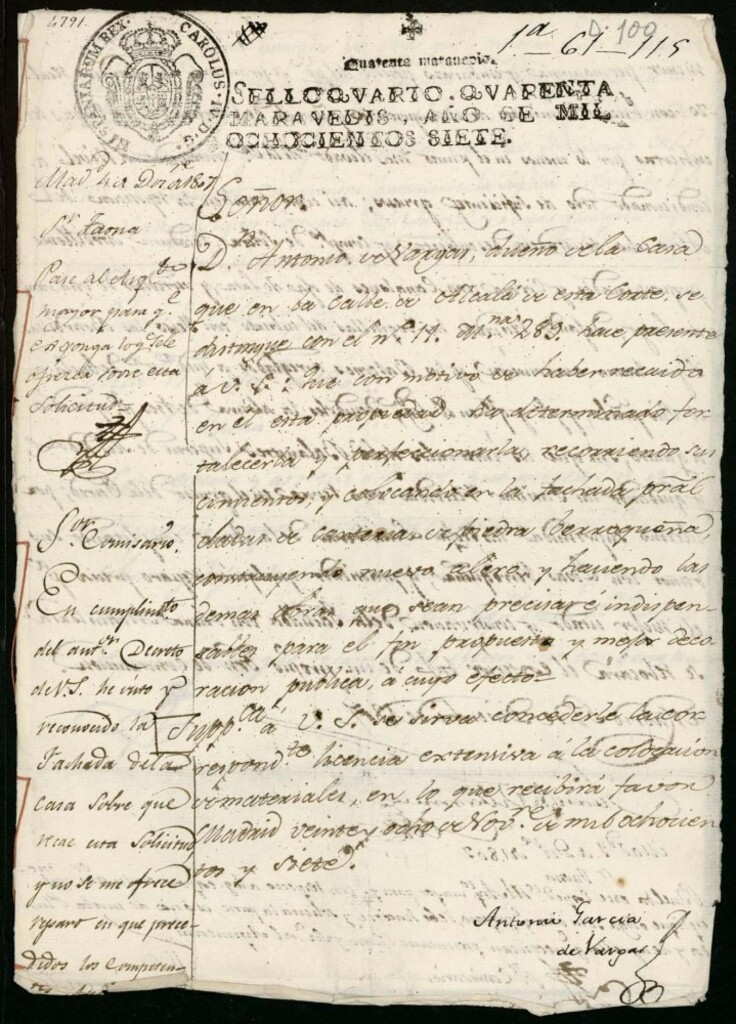 4791
D. 100
1ª - 61 - 115
HISPANIARUM REX. CAROLUS. IV. D. G.
Quarenta maravedis.
SELLO QVARTO. QVARENTA
MARAVEDIS, AÑO DE MIL
OCHOCIENTOS SIETE.
Señor.
Dn. Antonio de Vargas, dueño de la Casa
que en la Calle de Alcalá de esta Corte se
distingue con el nº. 11. mna. 289. hace presente
a V. S.: Que con motivo de haber recaido
en el esta propiedad, ha determinado for-
talecerla y perfeccionarla, recorriendo sus
cimientos, y colocando en la fachada pral
de canteria de piedra berroqueña,
construyendo nuevo alero, y haciendo las
demas obras que sean precisas é indispen-
sables para el fin propuesto y mejor deco-
racion publica, a cuyo efecto
Suppca. á V. S. se sirva concederle la cor-
respondte. licencia extensiva á la colocacion
de materiales, en lo que recibirá favor
Madrid veinte y ocho de Novre. de mil ochocien-
tos y siete.
Antonio Garcia
de Vargas
Madd. 4 de 1807
Sr.
Pase al Arqto.
mayor para q.e
exponga lo q.e se le
ofrezca sobre esta
solicitud
Sor. Comisario.
En cumplimto.
del antr. Decreto
de V.S. he visto y
reconocido la
Fachada de la
Casa sobre que
recae esta Solicitud
y no se me ofrece
reparo en que prece-
didos los Competen-